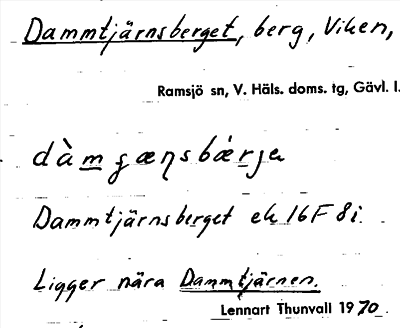 Dammtjärnsberget, berg, Viken,
Ramsjö sn, V. Häls. doms. tg, Gävl. l.
dàm ʒæɳsbærjə
Dammtjärnsberget ek 16F 8i.
Ligger nära Dammtjärnen.
Lennart Thunvall 1970.